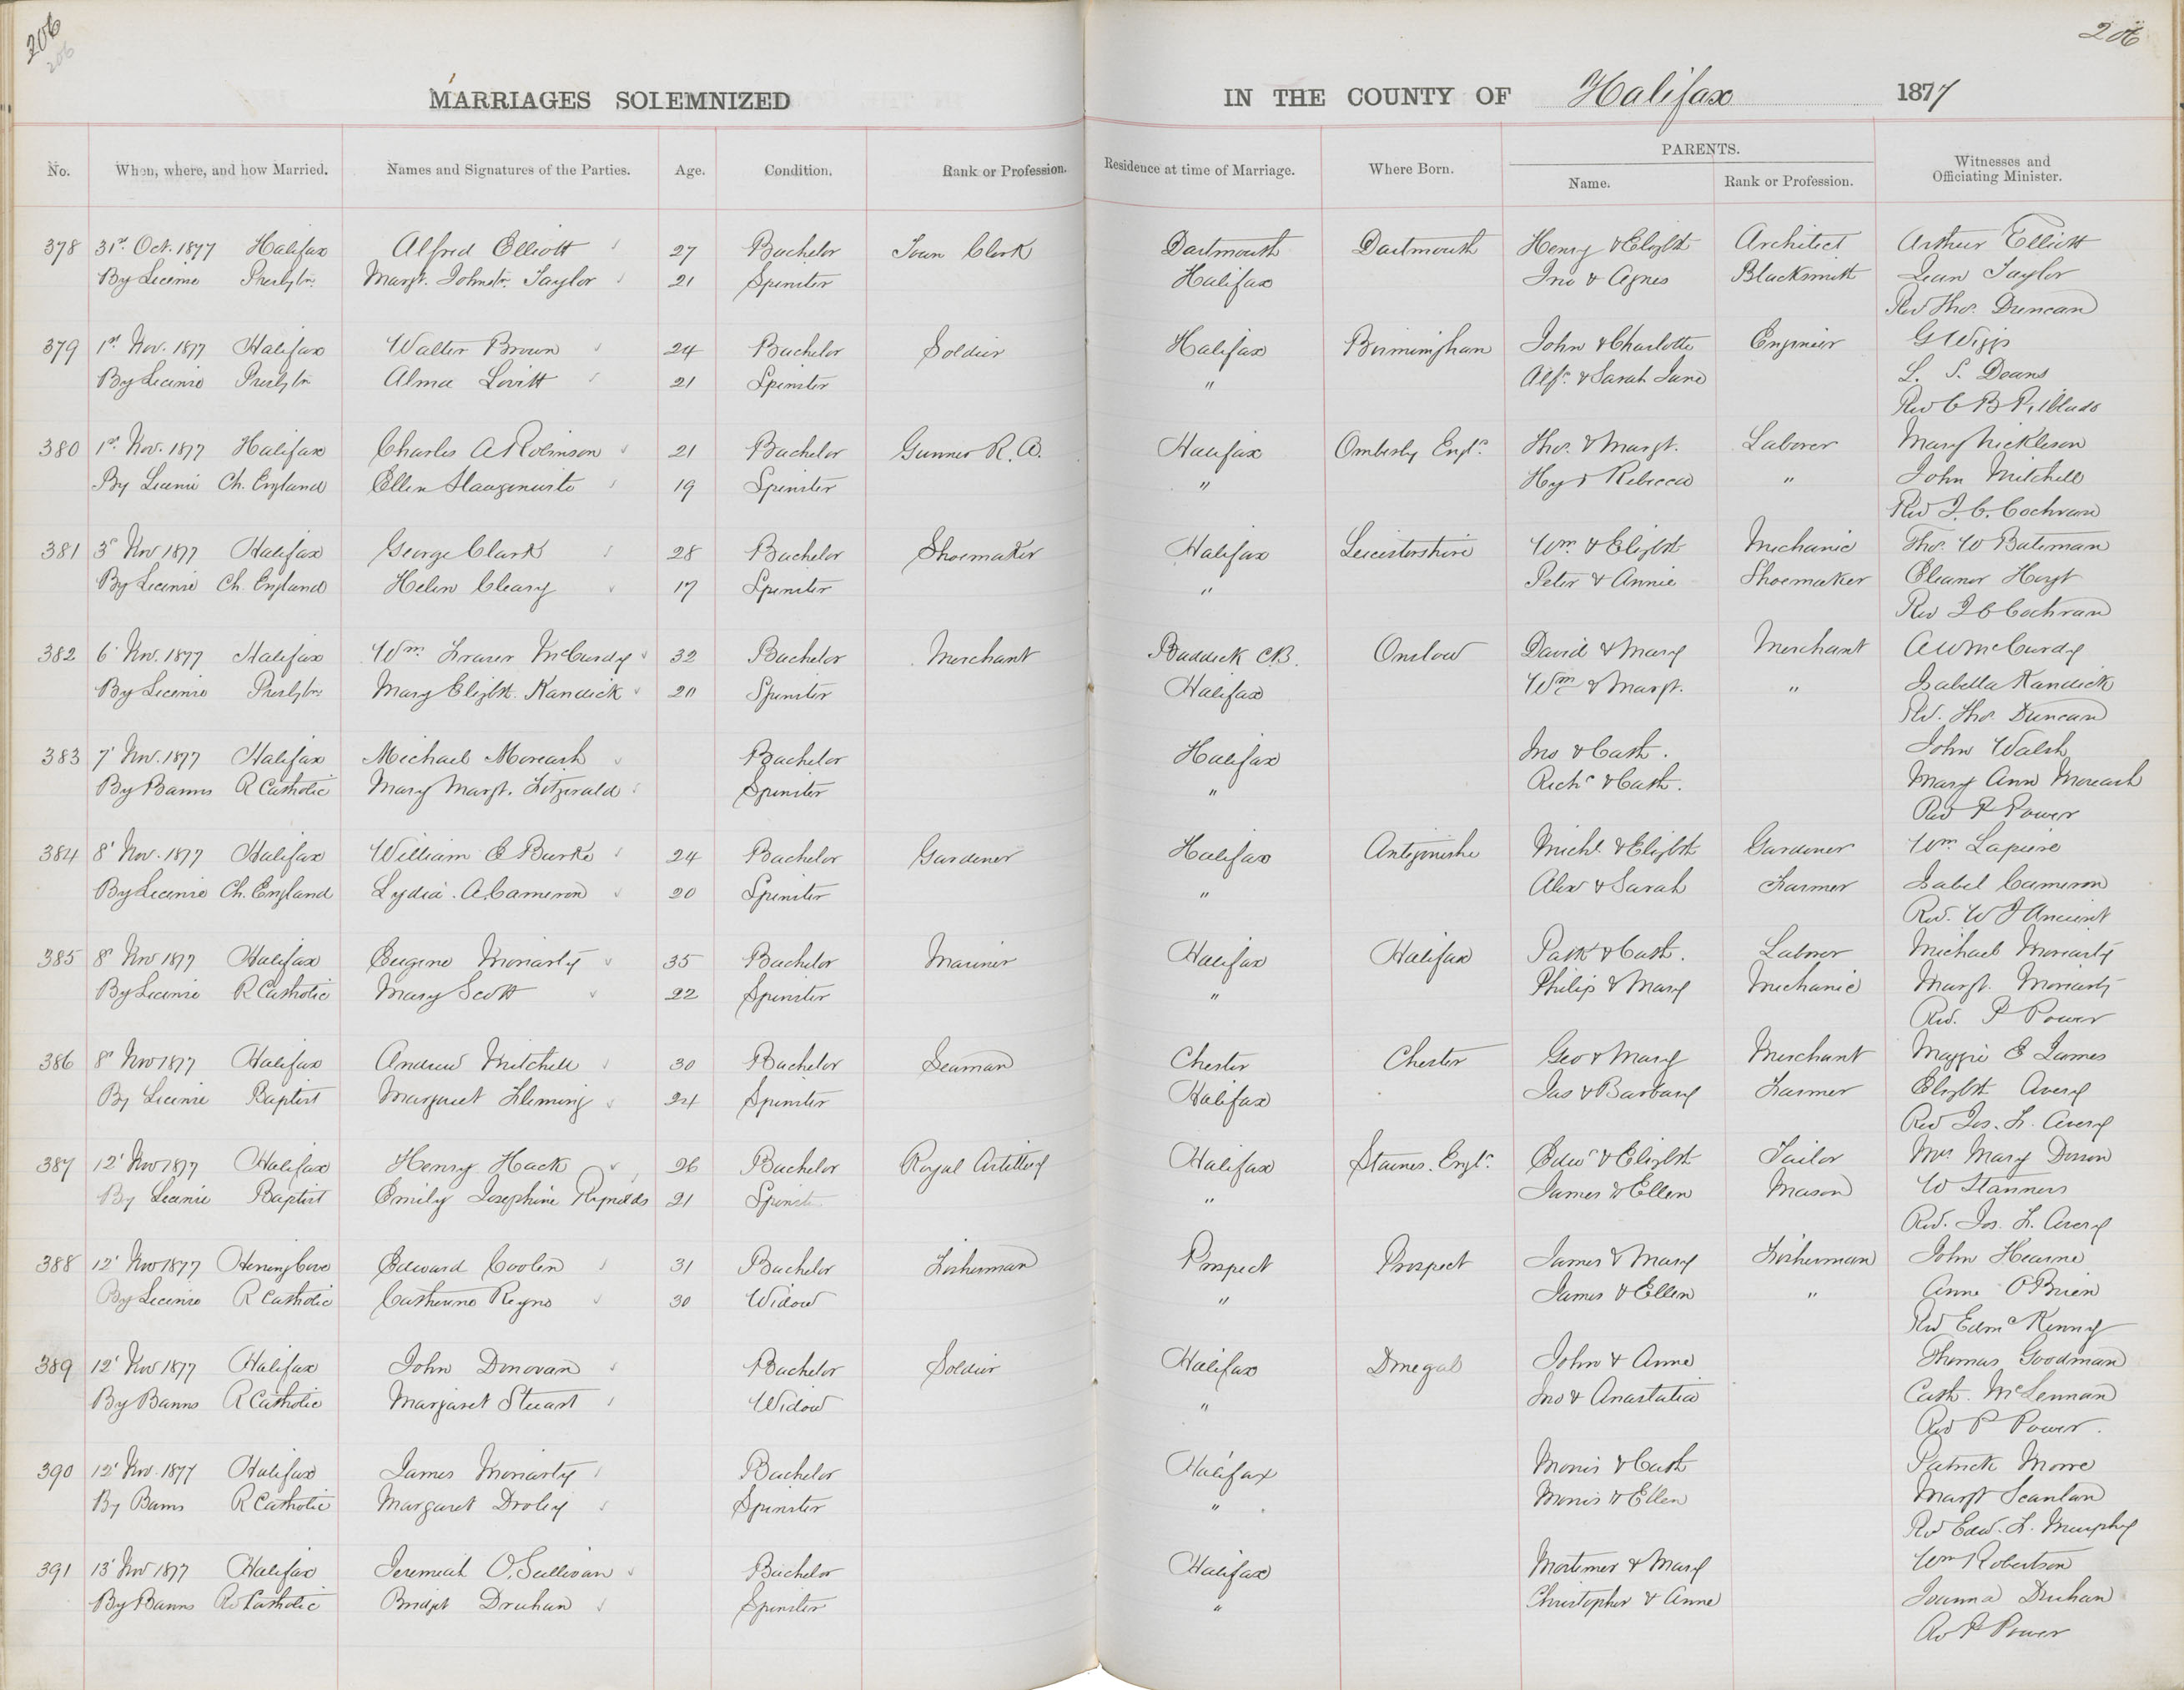 206
206
206
MARRIAGES SOLEMNIZED IN THE COUNTY OF Halifax 1877
No. When, where, and how Married. Names and Signatures of the Parties. Age. Condition. Rank or Profession. Residence at time of Marriage. Where Born. PARENTS. Name. Rank or Profession. Witnesses and Officiating Minister.
378 31st Oct. 1877 Halifax Alfred Elliott 27 Bachelor Town Clerk Dartmouth Dartmouth Henry & Elizbth Architect Arthur Elliott
By License Presbytn. Margt. Johnstn. Taylor 21 Spinster Halifax Jno & Agnes Blacksmith Jean Taylor
Rev Thos. Duncan
379 1st Nov. 1877 Halifax Walter Brown 24 Bachelor Soldier Halifax Birmingham John & Charlotte Engineer G Wiggs
By License Presbytn Alma Lovitt 21 Spinster " Alfd. & Sarah Jane L. S. Deans
Rev C B Pitblado
380 1st Nov. 1877 Halifax Charles A Robinson 21 Bachelor Gunner R.A. Halifax Ombersly Engd. Thos. & Margt. Laborer Mary Nickleson
By License Ch. England Ellen 19 Spinster " Hy & Rebecca " John Mitchell
Rev J. C. Cochran
381 3d Nov 1877 Halifax George Clark 28 Bachelor Shoemaker Halifax Leicestershire Wm. & Elizbth Mechanic Thos. W Bateman
By License Ch. England Helen Cleary 17 Spinster " Peter & Annie Shoemaker Eleanor Hoyt
Rev J C Cochran
382 6' Nov. 1877 Halifax Wm. Fraser McCurdy 32 Bachelor Merchant Baddick C.B. Onslow David & Mary Merchant A W McCurdy
By License Presbytn Mary Elizbth. Kandick 20 Spinster Halifax Wm & Margt. " Isabella Kandick
Rev. Thos. Duncan
383 7' Nov. 1877 Halifax Michael Moreash Bachelor Halifax Jno & Cath. John Walsh
By Banns R Catholic Mary Margt. Fitzgerald Spinster " Richd & Cath. Mary Ann Moreash
Rev P Power
384 8' Nov. 1877 Halifax William E Burke 24 Bachelor Gardener Halifax Antigonishe Michl. & Elizbth Gardener Wm. Lapiere
By License Ch. England Lydia A. Cameron 20 Spinster " Alex & Sarah Farmer Isabel Cameron
Rev. W J Ancient
385 8' Nov 1877 Halifax Eugene Moriarty 35 Bachelor Mariner Halifax Halifax Patk & Cath. Laborer Michael Moriarty
By License R Catholic Mary Scott 22 Spinster " Philip & Mary Mechanic Margt. Moriarty
Rev. P Power
386 8' Nov 1877 Halifax Andrew Mitchell 30 Bachelor Seaman Chester Chester Geo & Mary Merchant Maggie E James
By License Baptist Margaret Fleming 24 Spinster Halifax Jas & Barbary Farmer Elizbth Avery
Rev Jos. F. Avery
387 12' Nov 1877 Halifax Henry Hack 26 Bachelor Royal Artillery Halifax Staines. Engd. Edwd & Elizbth Tailor Mrs Mary
By License Baptist Emily Josephine Reynolds 21 Spinst " James & Ellen Mason W Stanners
Rev. Jos. F. Avery
388 12' Nov 1877 Herring Cove Edward Coolen 31 Bachelor Fisherman Prospect Prospect James & Mary Fisherman John Hearne
By License R Catholic Catherine Reyno 30 Widow " James & Ellen " Anne O'Brien
Rev Edmd Kenny
389 12' Nov 1877 Halifax John Donovan Bachelor Soldier Halifax Donegal John & Anne Thomas Goodman
By Banns R Catholic Margaret Stuart Widow " Jno & Anastatia Cath. McLennan
Rev P Power.
390 12' Nov. 1877 Halifax James Moriarty Bachelor Halifax Morris & Cath Patrick Morre
By Banns R Catholic Margaret Drohey Spinster " Morris & Ellen Margt Scanlan
Rev Edw. F. Murphy
391 13' Nov 1877 Halifax Jeremiah O'Sullivan Bachelor Halifax Mortimer & Mary Wm Robertson
By Banns Ro Catholic Bridget Druhan Spinster " Christopher & Anne Joanna Druhan
Rev P Power